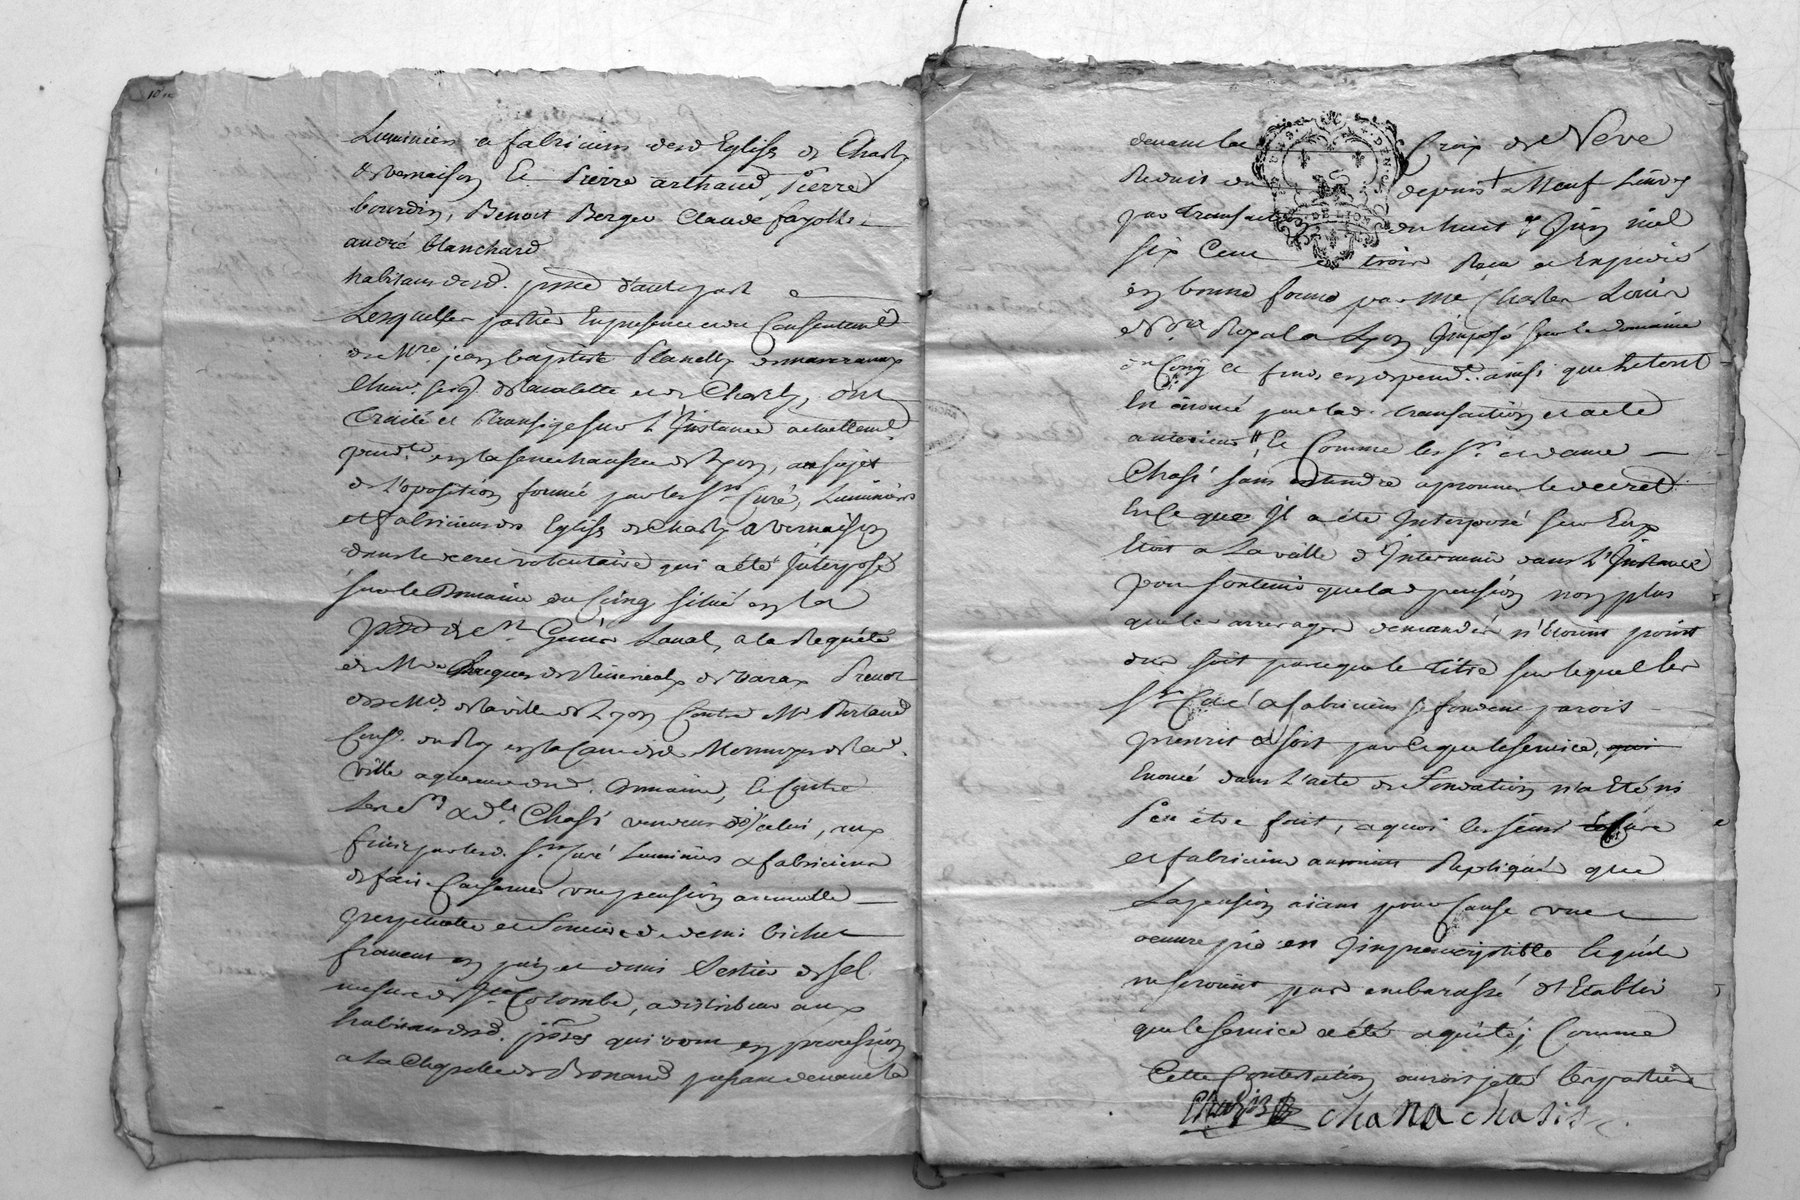 Luminiers et fabriciens desd Eglises de Charly
& vernaison Et Pierre arthaud Pierre
bourdin, Benoit Berger Claude fayolle
andré blanchard
habitans desd. psses d'autre part
Lesquelles parties En presence et du Consentem.t
de Mre jean baptiste Planelly
Chevr. seigr. de Lavalette et de Charly, ont
traité et transigé sur L'Instance actuellemt.
pend.te en la senechaussée de Lyon, au sujet
de L'oposition formée par les Srs Curé, Luminiers
et fabriciens des Eglises de Charly & vernaison
dans le decret volontaire qui a été Interposé
sur le Domaine du Cinq situé en la
psse de St Genis Laval, a la Requête
de Mre Prevot
des Mds de la ville de Lyon Contre Mr
Consr. du Roy en la Cour des Monnoyes de lad.
ville aquereur dud. Domaine, Et Contre
Les Srs & dlle. Chasi vendeurs d'icelui, aux
fins par lesd. Srs Curé Luminiers & fabriciens
de faire Conserver une pension annuelle
perpetuelle et fonciere de demi bichet
froment en pain et demi Sestier de sel
mesure de Ste Colombe, a distribuer aux
habitans desd. psses qui vont en procession
a La Chapelle de passant devant la
devant la Croix de Neve
Reduit du depuis a Neuf Livres
par transaction du huit Juin mil
six Cent trois Recu et Expedié
en bonne forme par Me Charles Louis
Nre Royal a Lyon Imposé sur le domaine
du Cinq et fonds en depend. ainsi que le tout
Est énoncé par lad. transaction et acte
anterieur, Et Comme les Srs et dame
Chasi sans entendre aprouver le decret
En Ce que Il a été Interposé sur Eux
Etoit a La veille d'Intervenir dans L'Instance
pour soutenir que lad pension non plus
que les arrerages demandés n'étoient point
dus soit parceque le titre sur lequel les
Srs Curé & fabriciens se fondent parois
prescrit & soit parceque le service, qui
Enoncé dans L'acte de fondation n'a été ni
Peu être fait, a quoi les sieurs Curé
et fabriciens auroient Repliqué que
La pension aiant pour Cause une
œuvre pie est Imprescriptible & qu'ils
ne seroient pas embarassé d'Etablir
que le service a été aquité, Comme
Cette Contestation auroit jetté les parties
chana chasis